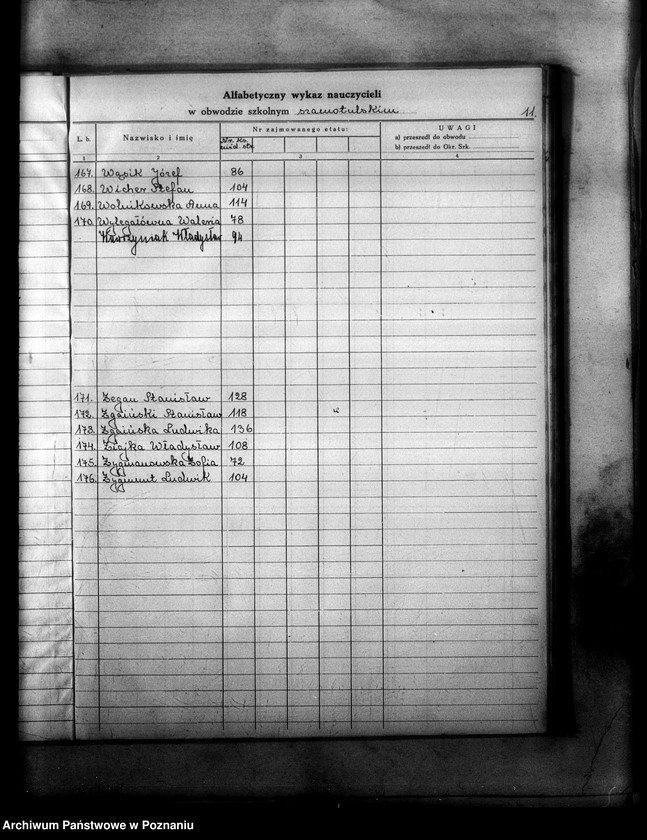 Alfabetyczny wykaz nauczycieli
w obwodzie szkolnym szamotulskim 11.
L. b. Nazwisko i imię Nr zajmowanego etatu: UWAGI
a) przeszedł do obwodu
b) przeszedł do Okr. Szk.
1 2 3 4
167. Wąsik Józef 86
168. Wicher Stefan 104
169. Wolnikowska Anna 114
170. Wylegałówna Waleria 78
Wawrzyniak Władysław 94
171. Zegan Stanisław 128
172. Zgaiński Stanisław 118
173. Zgaińska Ludwika 136
174. Ziajka Władysław 108
175. Zygmanowska Zofia 72
176. Zygmunt Ludwik 104
Archiwum Państwowe w Poznaniu